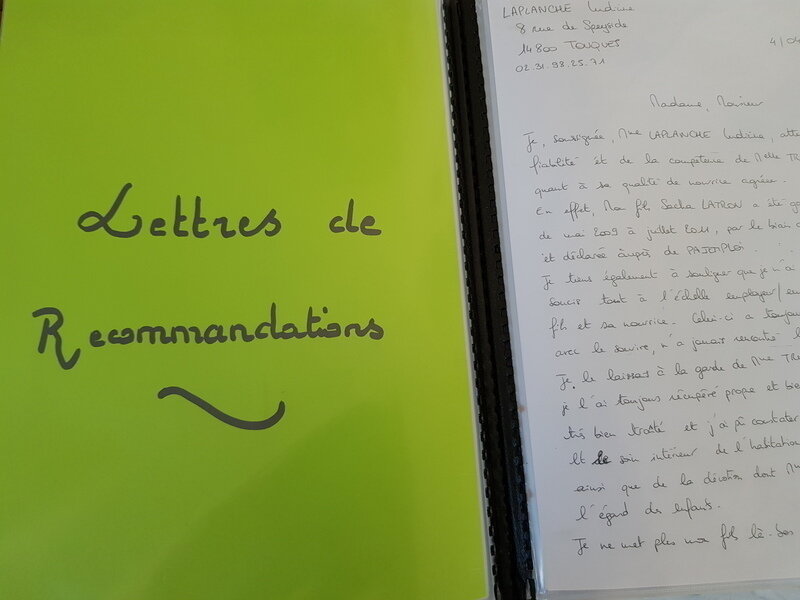 Lettres de
Recommandations
LAPLANCHE Ludivine
8 rue de Speyside
14800 TOUQUES
4/04
02.31.98.25.71
Madame, Monsieur
Je, soussignée, Mme LAPLANCHE Ludivine, atte
fiabilité et de la compétence de Melle TR
quant à sa qualité de nourrice agréée.
En effet, Mon fils, Sacha LATRON a été ga
de mai 2009 à juillet 2011, par le biais d
et déclarée auprès de PAJEMPLOI.
Je tiens également à souligner que je n'ai
soucis tant à l'échelle employeur/em
fils et sa nourrice. Celui-ci a toujou
avec le sourire, n'a jamais rencontré
Je le laissais à la garde de Mme TR
je l'ai toujours récupéré propre et bie
très bien traité et j'ai pû constater
et le soin intérieur de l'habitation
ainsi que de la dévotion dont M
l'égard des enfants.
Je ne met plus mon fils là-bas